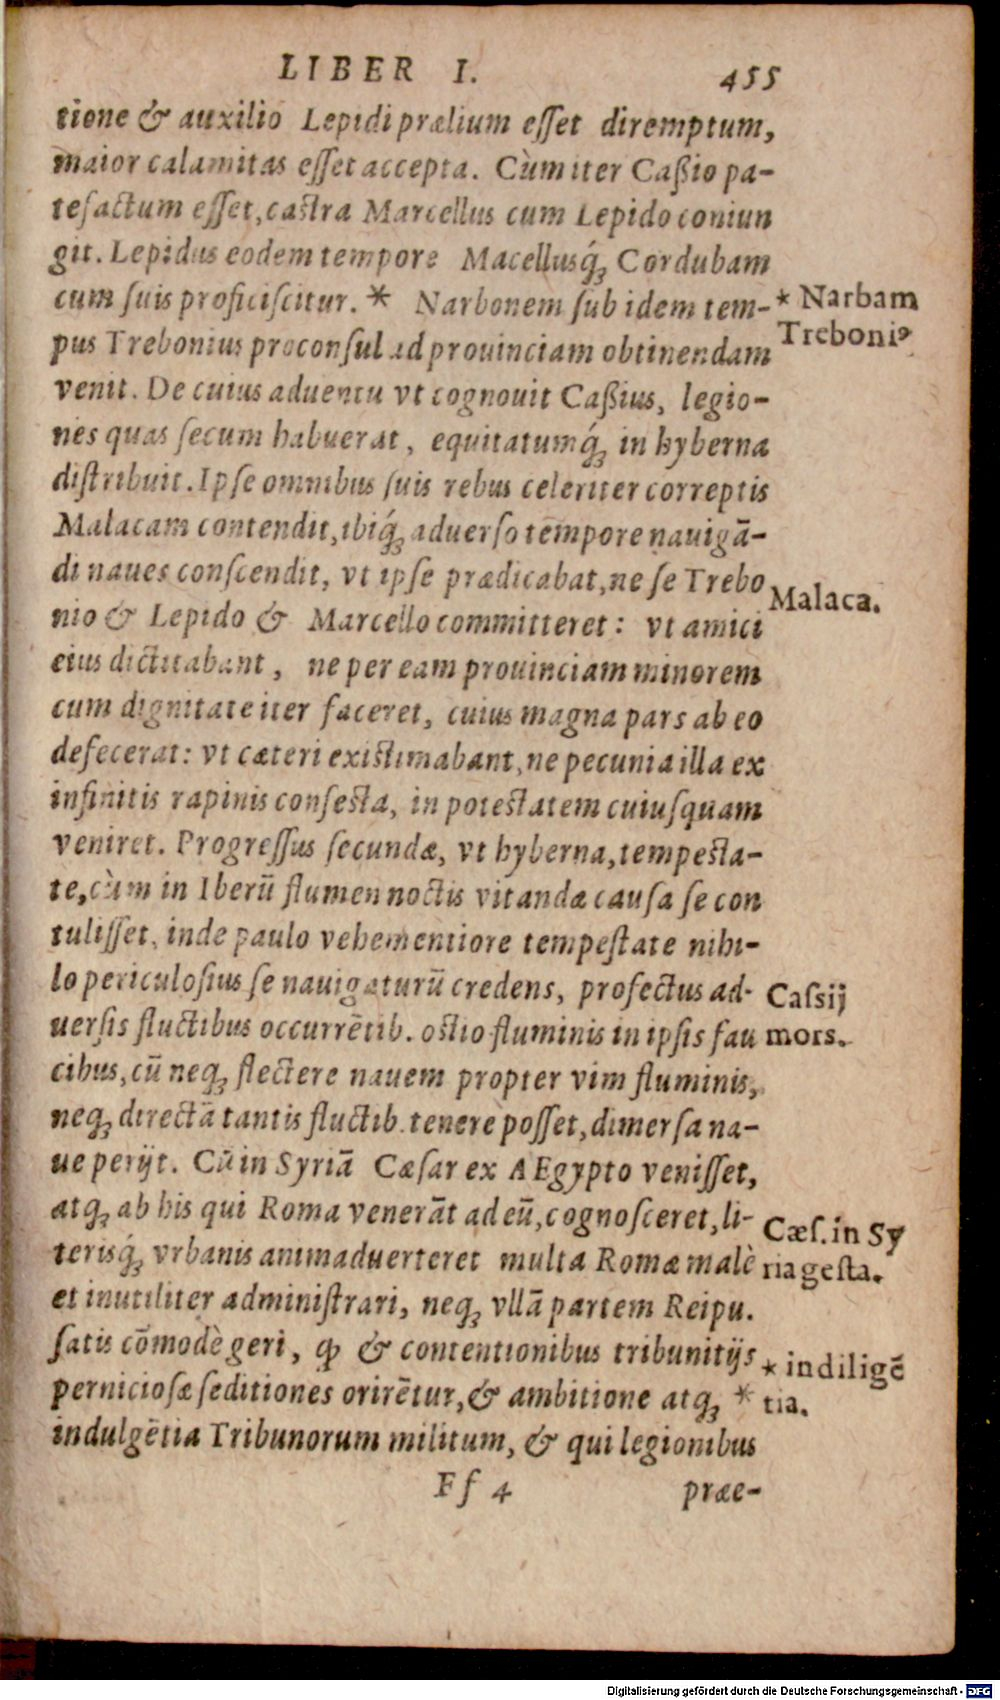 LIBER I. 455
tione & auxilio Lepidi prælium eſſet diremptum,
maior calamitas eſſet accepta. Cùm iter Caßio pa-
tefactum eſſet, caſtra Marcellus cum Lepido coniun
git. Lepidus eodem tempore Macellusq́ꝫ Cordubam
cum ſuis proficiſcitur. * Narbonem ſub idem tem-
* Narbam
pus Trebonius proconſul ad prouinciam obtinendam
Treboniꝰ
venit. De cuius aduentu vt cognouit Caßius, legio-
nes quas ſecum habuerat, equitatumq́ꝫ in hyberna
diſtribuit. Ipſe omnibus ſuis rebus celeriter correptis
Malacam contendit, ibiq́ꝫ aduerſo tempore nauigā-
di naues conſcendit, vt ipſe prædicabat, ne ſe Trebo
Malaca.
nio & Lepido & Marcello committeret: vt amici
eius dictitabant, ne per eam prouinciam minorem
cum dignitate iter faceret, cuius magna pars ab eo
defecerat: vt cæteri exiſtimabant, ne pecunia illa ex
infinitis rapinis confecta, in poteſtatem cuiuſquam
veniret. Progreſſus ſecundæ, vt hyberna, tempeſta-
te, cùm in Iberū flumen noctis vitandæ cauſa ſe con
tuliſſet, inde paulo vehementiore tempeſtate nihi-
lo periculoſius ſe nauigaturū credens, profectus ad-
Caſsij
uerſis fluctibus occurrētib. oſtio fluminis in ipſis fau
mors.
cibus, cū neqꝫ flectere nauem propter vim fluminis,
neqꝫ directā tantis fluctib. tenere poſſet, dimerſa na-
ue perijt. Cū in Syriā Cæſar ex AEgypto veniſſet,
atqꝫ ab his qui Roma venerāt ad eū, cognoſceret, li-
Cæſ. in Sy
terisq́ꝫ vrbanis animaduerteret multa Romæ malè
ria geſta.
et inutiliter adminiſtrari, neqꝫ vllā partem Reipu.
ſatis cōmodè geri, ꝙ & contentionibus tribunitijs
* indiligē
pernicioſæ ſeditiones orirētur, & ambitione atqꝫ *
tia.
indulgētia Tribunorum militum, & qui legionibus
Ff 4 præe-
Digitalisierung gefördert durch die Deutsche Forschungsgemeinschaft - DFG